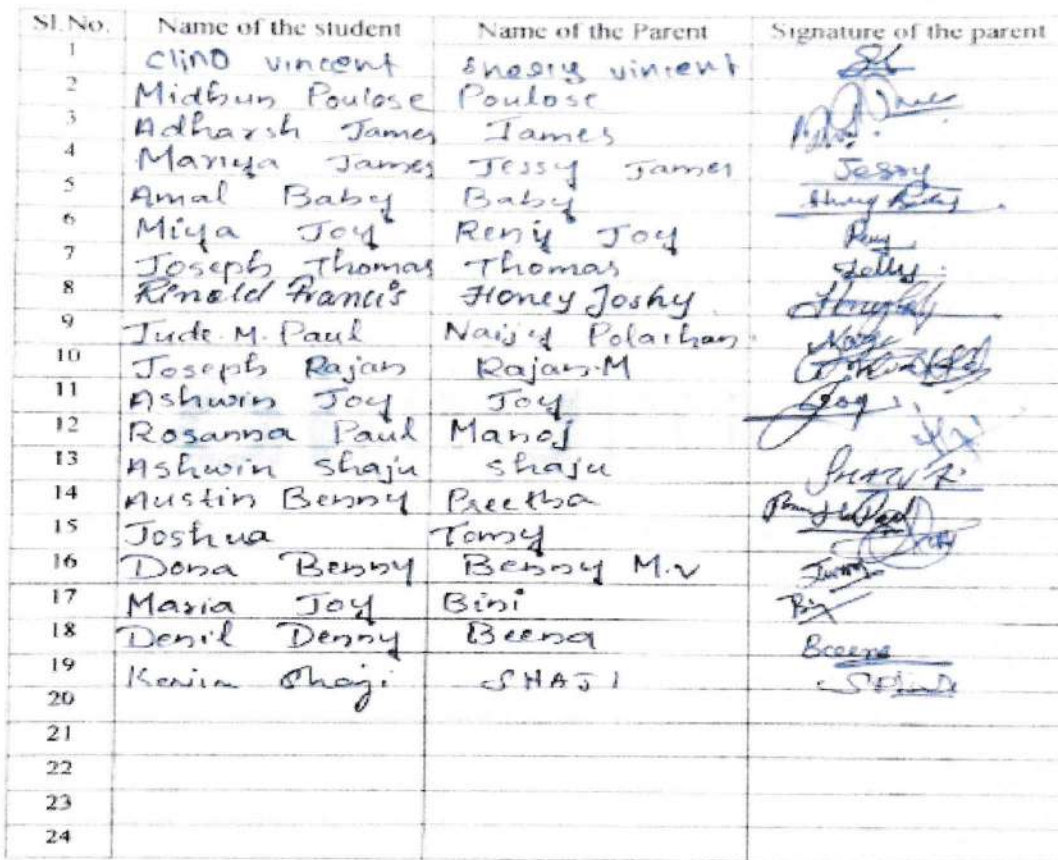 Sl.No. Name of the student Name of the Parent Signature of the parent
1 Clino vincent vincent
2 Midhun Poulose Poulose
3 Adharsh James James
4 Mariya James Jessy James Jessy
5 Amal Baby Baby
6 Miya Joy Reniy Joy Reny
7 Joseph Thomas Thomas Jelly
8 Rinold Francis Honey Joshy
9 Jude.M.Paul Naisy Polachan
10 Joseph Rajan Rajan.M
11 Ashwin Joy Joy Joy
12 Rosanna Paul Manoj
13 Ashwin Shaju Shaju
14 Austin Benny Preetha
15 Joshua Tomy
16 Dona Benny Benny M.V
17 Maria Joy Bini
18 Denil Denny Beena Beena
19 Shaji SHAJI
20
21
22
23
24